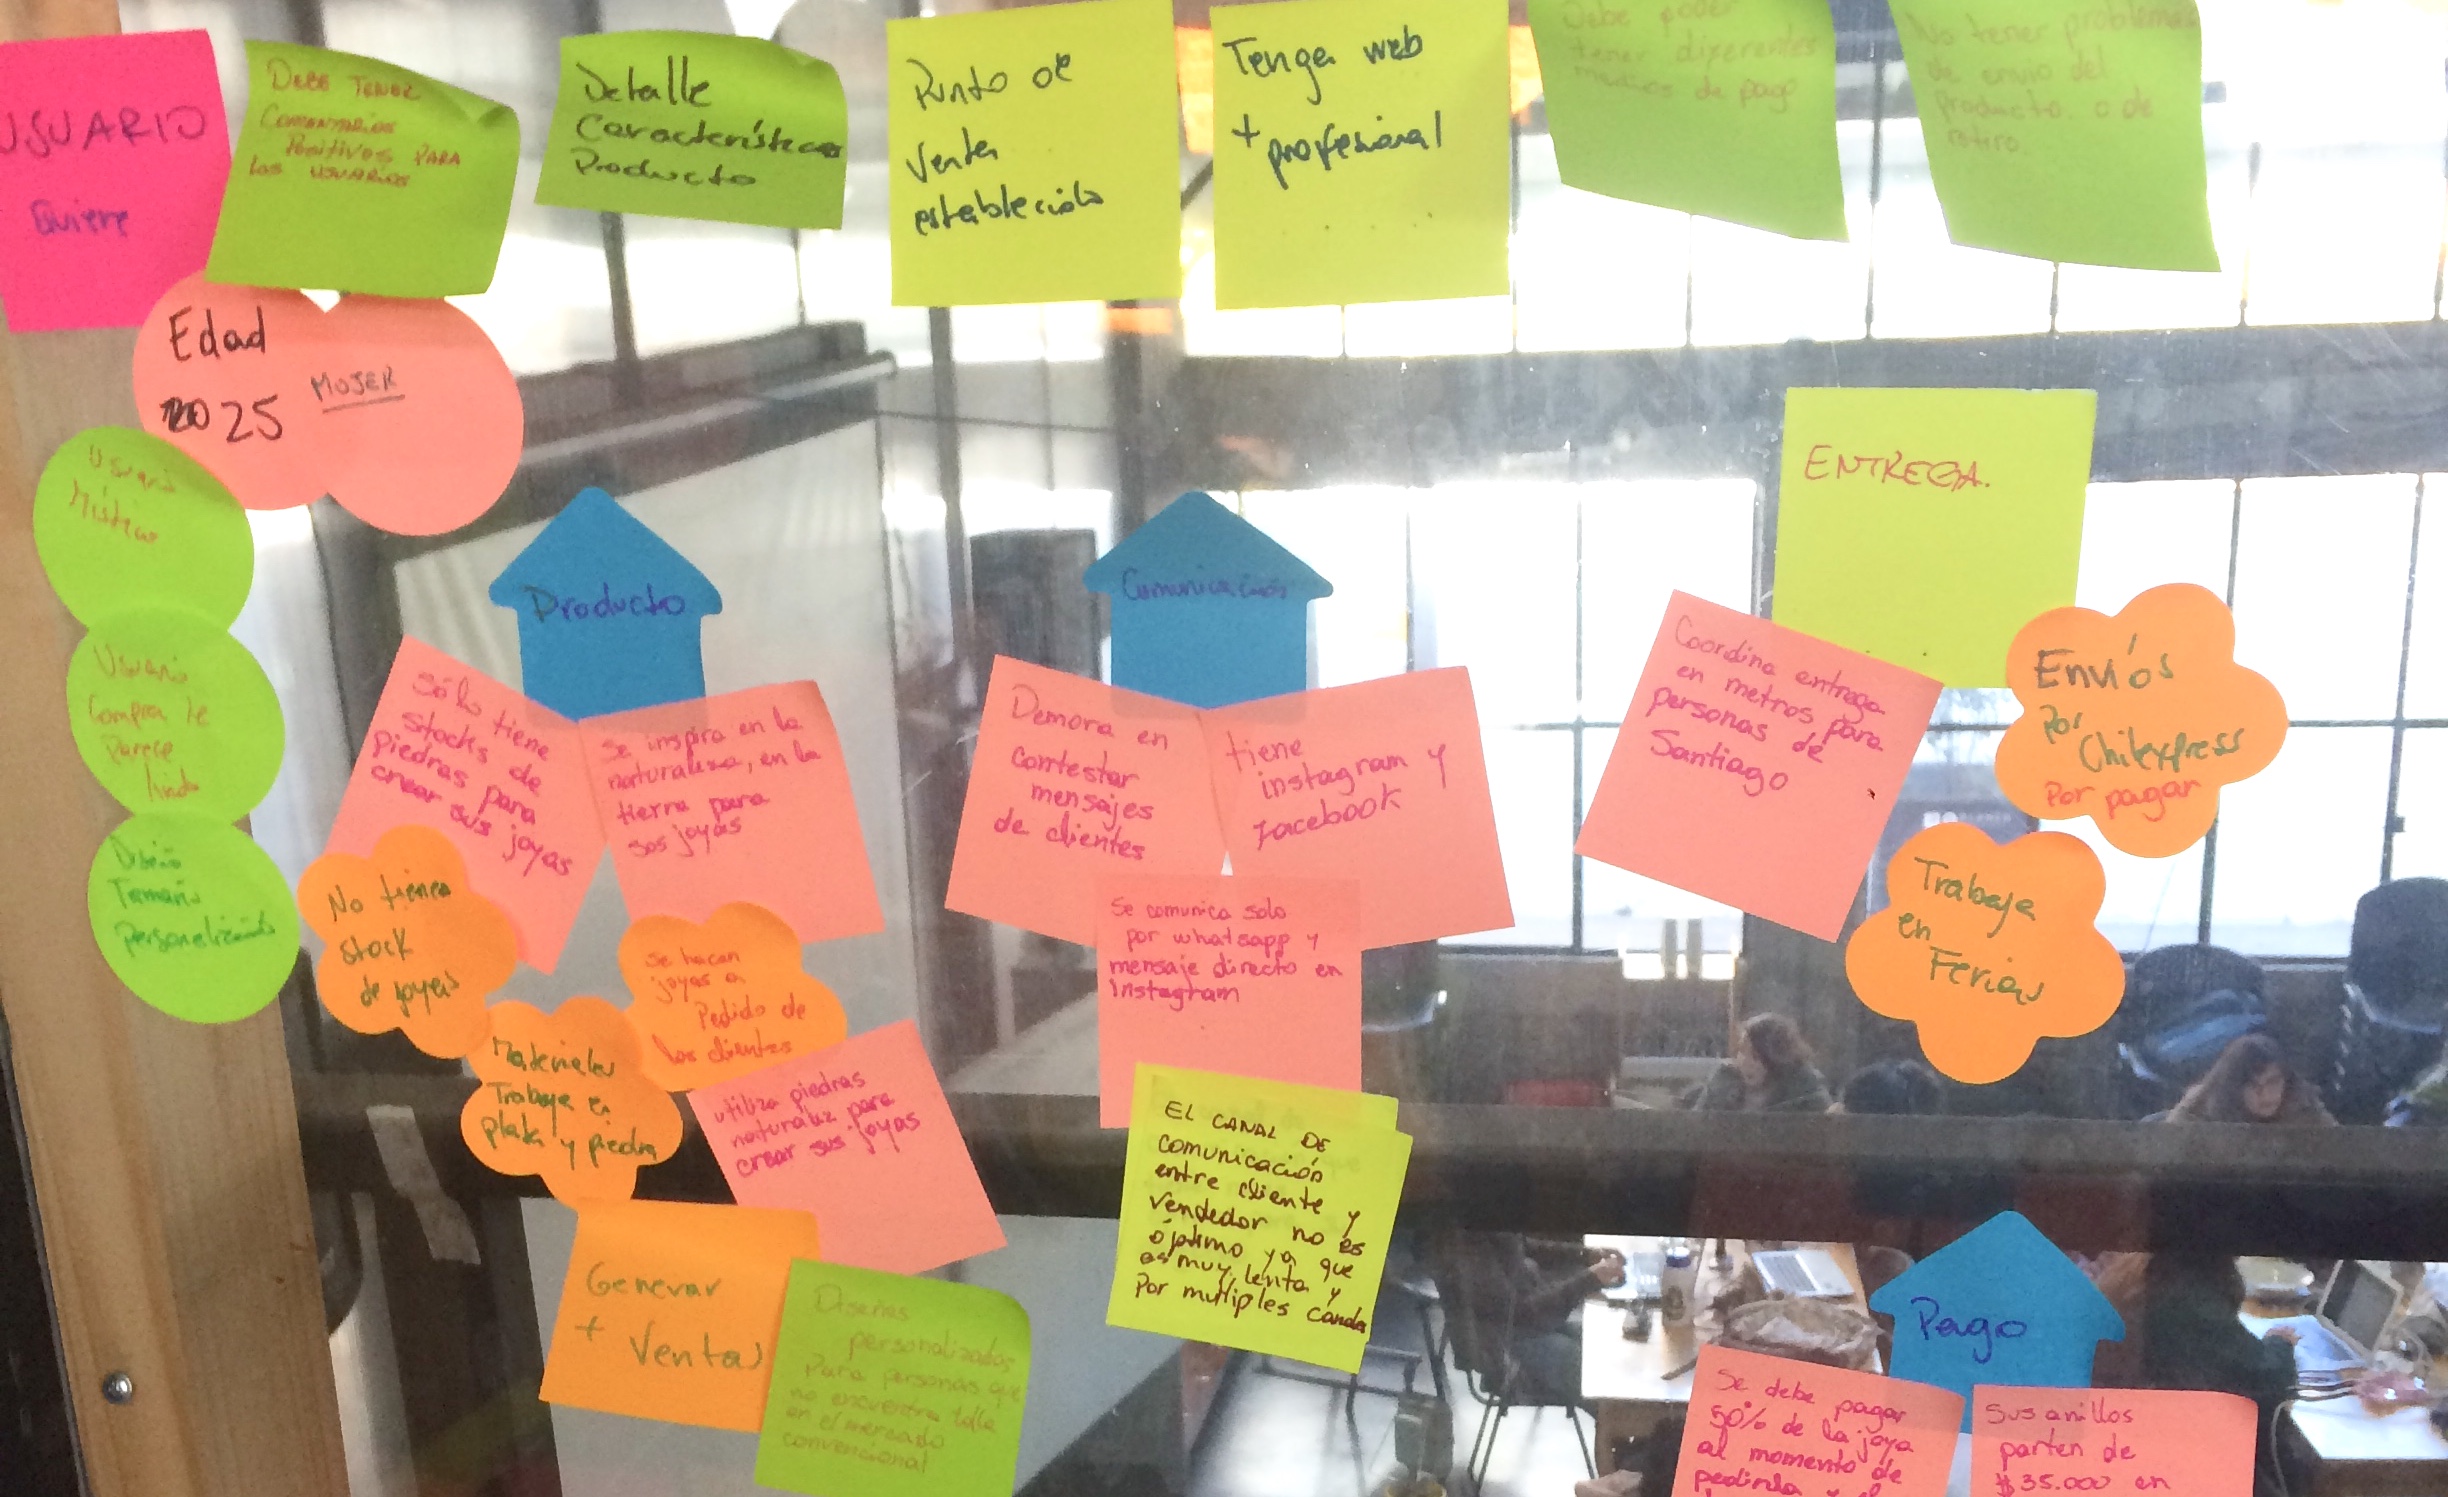 USUARIO
Quiere
DEBE TENER
Comentarios
Positivos PARA
los USUARIOS
Detalle
Características
Producto
Punto de
Venta
establecido
Tenga web
+ profesional
Debe poder
tener diferentes
medios de pago
No tener problemas
de envio del
producto o de
retiro
Edad
20 25
MUJER
Usuario
Místico
Usuario
Compra le
Parece
lindo
Diseño
Tamaño
personalizado
Producto
Sólo tiene
stocks de
piedras para
crear sus joyas
Se inspira en la
naturaleza, en la
tierra para
sus joyas
No tiene
stock
de joyas
Se hacen
joyas a
Pedido de
los clientes
Materiales
Trabaja en
plata y piedra
utiliza piedras
crear sus joyas
Generar
+ Ventas
Diseños
personalizados
Para personas que
no encuentra talla
en el mercado
convencional
Comunicación
Demora en
contestar
mensajes
de clientes
tiene
instagram y
facebook
Se comunica solo
por whatsapp y
mensaje directo en
Instagram
EL CANAL DE
comunicación
entre cliente y
vendedor no es
óptimo ya que
es muy lenta y
Por multiples
ENTREGA.
Coordina entrega
en metros para
personas de
Santiago
Envíos
Por
Chilexpress
Por pagar
Trabaja
en
Ferias
Pago
Se debe pagar
50% de la joya
al momento de
Sus anillos
parten de
$35.000 en